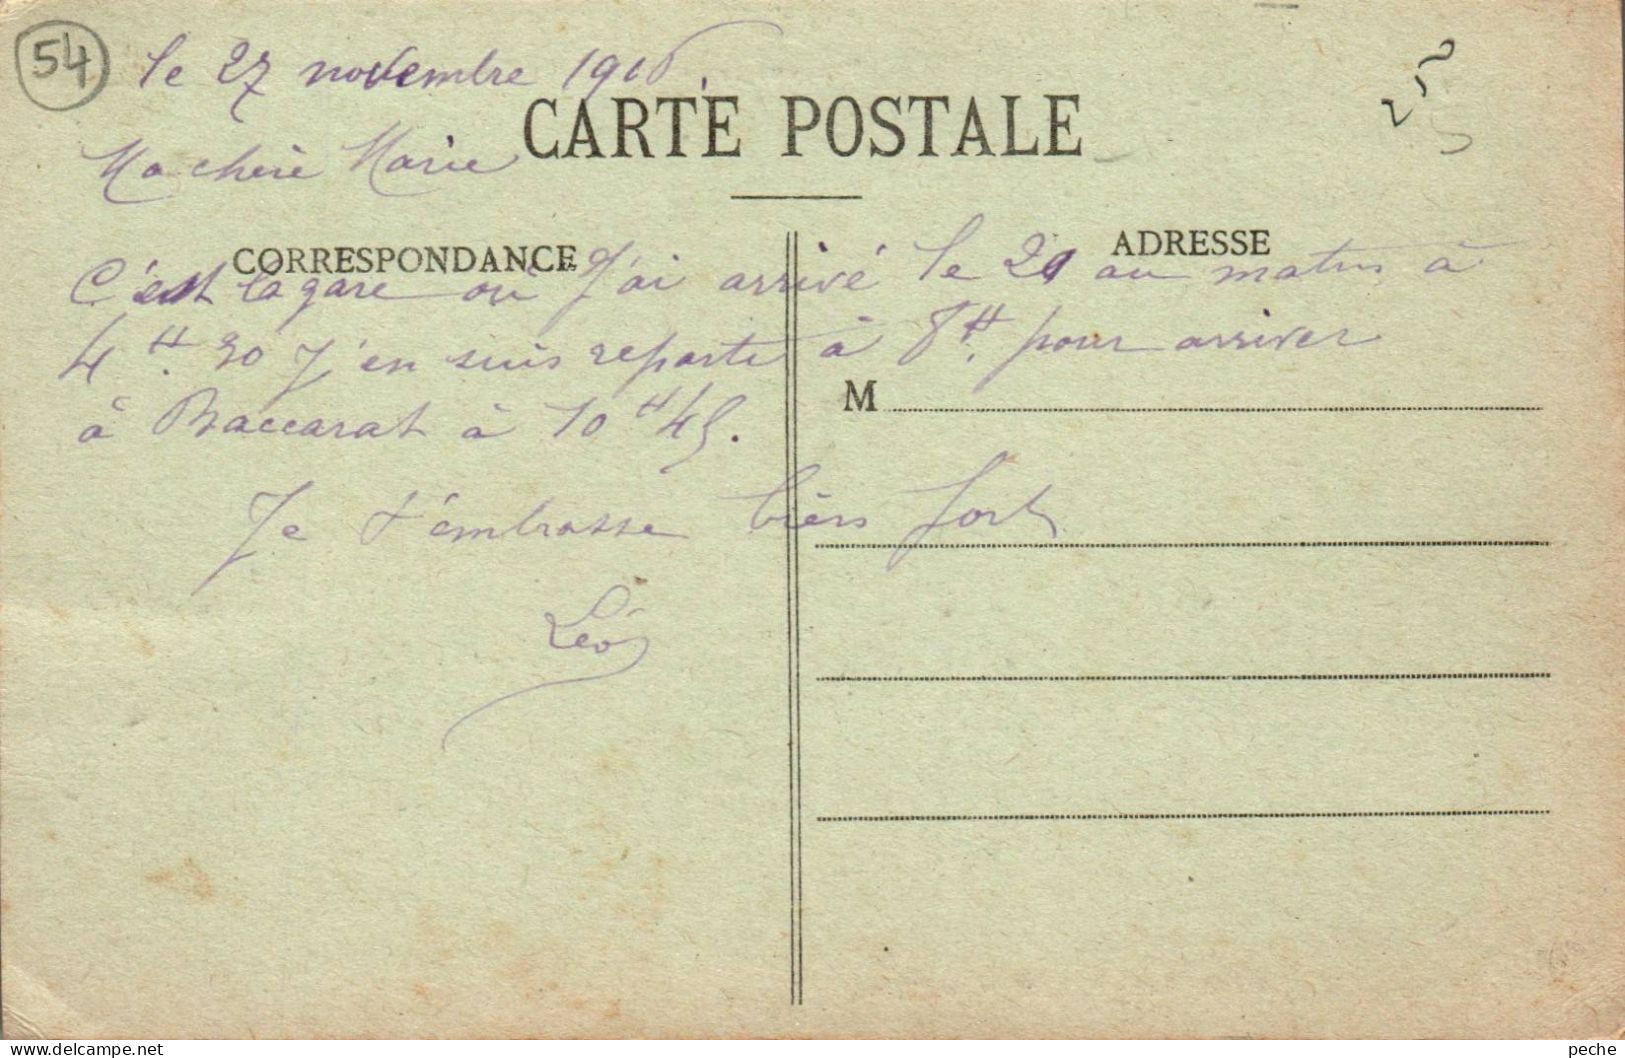 54
le 27 novembre 1916
CARTE POSTALE
Ma chère Marie
CORRESPONDANCE
ADRESSE
C'est la gare où J'ai arrivé le 21 au matin à
4 H. 30 J'en suis reparti à 8 H. pour arriver
M
à Baccarat à 10 H 45.
Je t'embrasse bien fort
Léo
peche